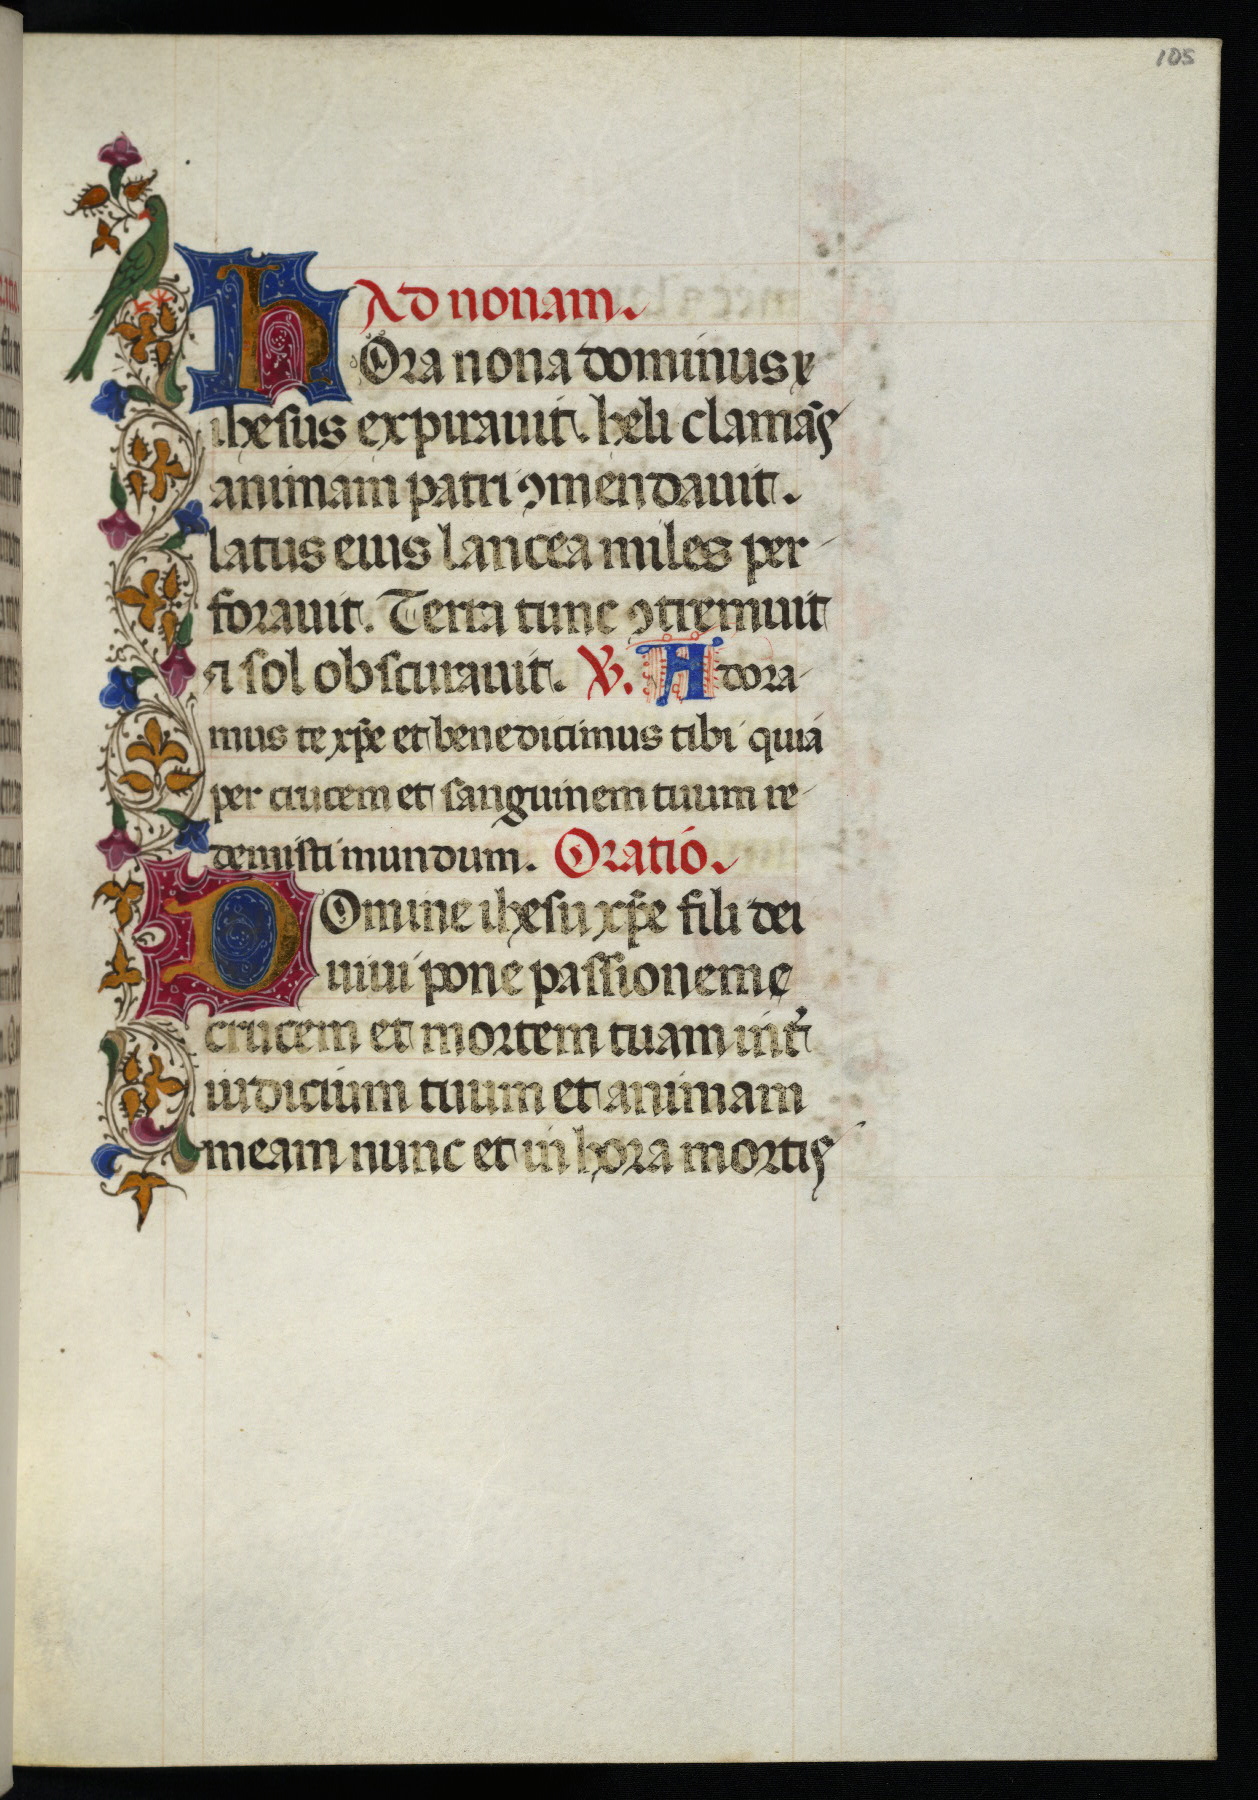 105
Ad nonam.
hOra nona dominus x̄
ihesus expirauit. heli clamās
animam patri ꝯmendauit.
latus eius lancea miles per-
forauit. Terra tunc ꝯtremuit
⁊ sol obscurauit. V. Adora-
mus te xp̄e et benedicimus tibi quia
per crucem et sanguinem tuum re-
demisti mundum. Oratio.
DOmine ihesu xp̄e fili dei
uiui pone passionem
crucem et mortem tuam int̉
iudicium tuum et animam
meam nunc et in hora mortis